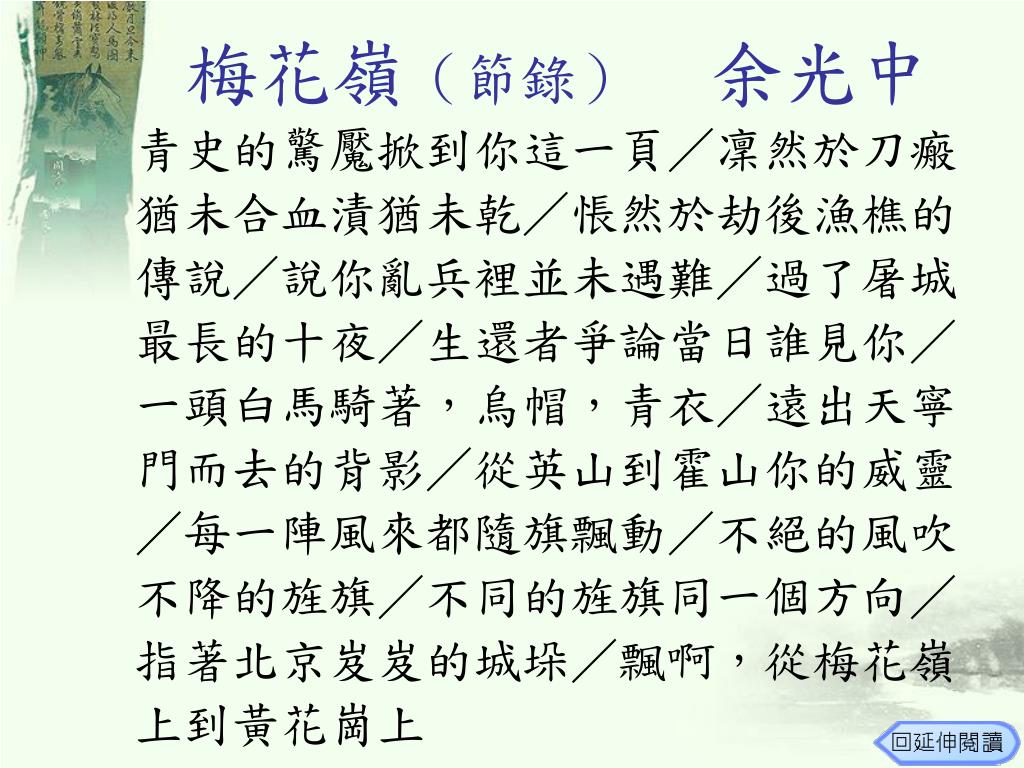 梅花嶺（節錄）　余光中
青史的驚魘掀到你這一頁／凜然於刀瘢
猶未合血漬猶未乾／悵然於劫後漁樵的
傳說／說你亂兵裡並未遇難／過了屠城
最長的十夜／生還者爭論當日誰見你／
一頭白馬騎著，烏帽，青衣／遠出天寧
門而去的背影／從英山到霍山你的威靈
／每一陣風來都隨旗飄動／不絕的風吹
不降的旌旗／不同的旌旗同一個方向／
指著北京岌岌的城垛／飄啊，從梅花嶺
上到黃花崗上
回延伸閱讀